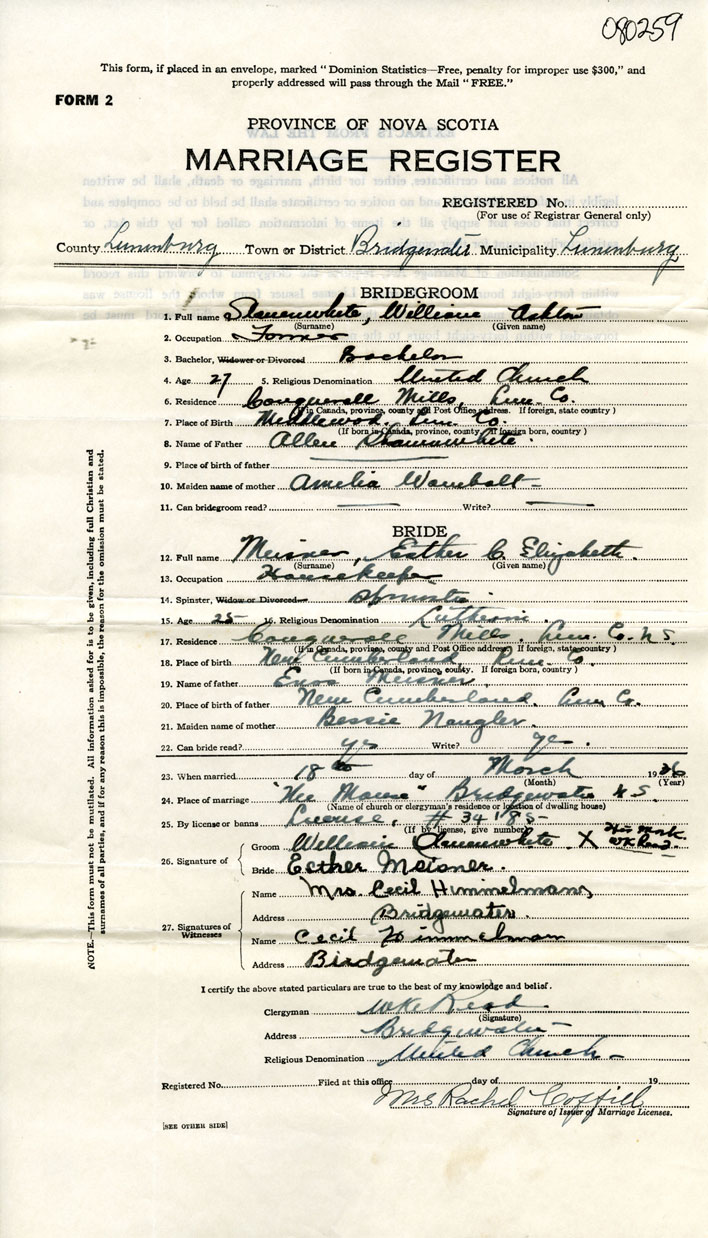 080259
This form, if placed in an envelope, marked "Dominion Statistics—Free, penalty for improper use $300," and
properly addressed will pass through the Mail "FREE."
FORM 2
PROVINCE OF NOVA SCOTIA
MARRIAGE REGISTER
REGISTERED No.
(For use of Registrar General only)
County Lunenburg Town or District Bridgewater Municipality Lunenburg
BRIDEGROOM
1. Full name Slauenwhite, William Ashton
(Surname) (Given name)
2. Occupation Farmer
3. Bachelor, Widower or Divorced Bachelor
4. Age 27 5. Religious Denomination United Church
6. Residence Conquerall Mills, Lun. Co.
(If in Canada, province, county and Post Office address. If foreign, state country)
7. Place of Birth Middlewood, Lun. Co.
(If born in Canada, province, county. If foreign born, country)
8. Name of Father Allen Slauenwhite
9. Place of birth of father
10. Maiden name of mother Amelia Wambolt
11. Can bridegroom read? Write?
BRIDE
12. Full name Meisner, Esther C. Elizabeth
(Surname) (Given name)
13. Occupation Housekeeper
14. Spinster, Widow or Divorced Spinster
15. Age 25 16. Religious Denomination Lutheran
17. Residence Conquerall Mills, Lun. Co. N.S.
(If in Canada, province, county and Post Office address. If foreign, state country)
18. Place of birth New Cumberland, Lun. Co.
(If born in Canada, province, county. If foreign born, country)
19. Name of father Enos Meisner
20. Place of birth of father New Cumberland, Lun Co.
21. Maiden name of mother Bessie Naugler
22. Can bride read? yes Write? yes.
23. When married 18th day of March 1936
(Month) (Year)
24. Place of marriage "The Manse" Bridgewater N.S.
(Name of church or clergyman's residence or location of dwelling house)
25. By license or banns License, # 34185
(If by license, give number)
26. Signature of Groom William Slauenwhite X His Mark
WK Read
Bride Esther Meisner.
27. Signatures of Witnesses
Name Mrs. Cecil Himmelman
Address Bridgewater.
Name Cecil Himmelman
Address Bridgewater
I certify the above stated particulars are true to the best of my knowledge and belief.
Clergyman WK Read
(Signature)
Address Bridgewater
Religious Denomination United Church
Registered No. Filed at this office day of 19
Mrs Rachel Coffill
Signature of Issuer of Marriage Licenses.
[SEE OTHER SIDE]
NOTE.—This form must not be mutilated. All information asked for is to be given, including full Christian and
surnames of all parties, and if for any reason this is impossible, the reason for the omission must be stated.